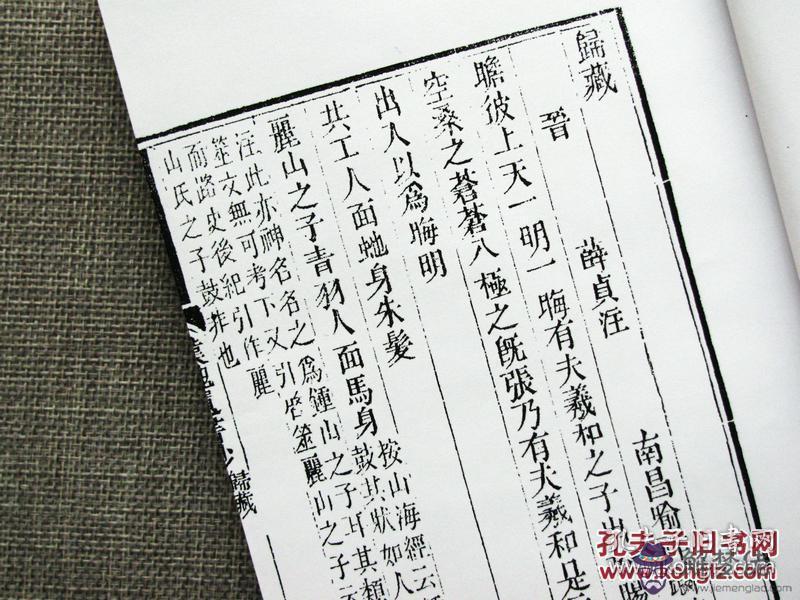 歸藏
晉 薛貞注 南昌喻
瞻彼上天一明一晦有夫羲和之子出
空桑之蒼蒼八極之既張乃有夫羲和是
出入以為晦明
共工人面虵身朱髮
麗山之子青羽人面馬身
按山海經云
鼓其狀如人
注此亦神名名之為鍾山之子耳其類
筮文無可考下又引啓筮麗山之子
而路史後紀引作麗
山氏之子鼓非也
歸藏
孔夫子旧书网